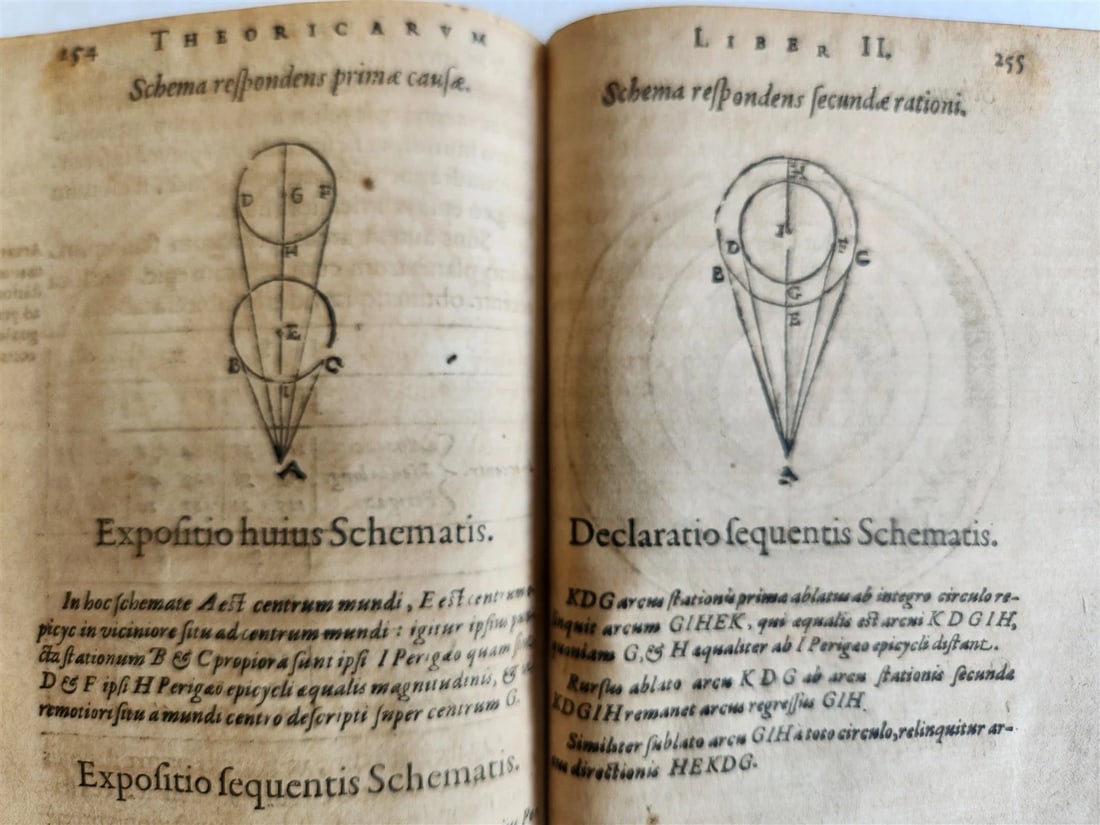 254
THEORICARVM
Schema reſpondens primæ cauſæ.
D
G
F
H
E
B
C
I
A
Expoſitio huius Schematis.
In hoc ſchemate A eſt centrum mundi, E eſt centrum
picyc in viciniore ſitu ad centrum mundi : igitur ipſius
cta ſtationum B & C propiora ſunt ipſi I Perigæo quam
D & F ipſi H Perigæo epicycli æqualis magnitudinis, &
remotiori ſitu à mundi centro deſcripti ſuper centrum G.
Expoſitio ſequentis Schematis.
LIBER II.
255
Schema reſpondens ſecundæ rationi.
I
D
B
C
G
E
A
Declaratio ſequentis Schematis.
KDG arcus ſtationis prima ablatus ab integro circulo re-
linquit arcum GIHEK, qui æqualis eſt arcui KDGIH,
quoniam G, & H æqualiter ab I Perigæo epicycli diſtant.
Rurſus ablato arcu KDG ab arcu ſtationis ſecundæ
KDGIH remanet arcus regreſſus GIH.
Similiter ſublato arcu GIH à toto circulo, relinquitur ar-
cus directionis HEKDG.